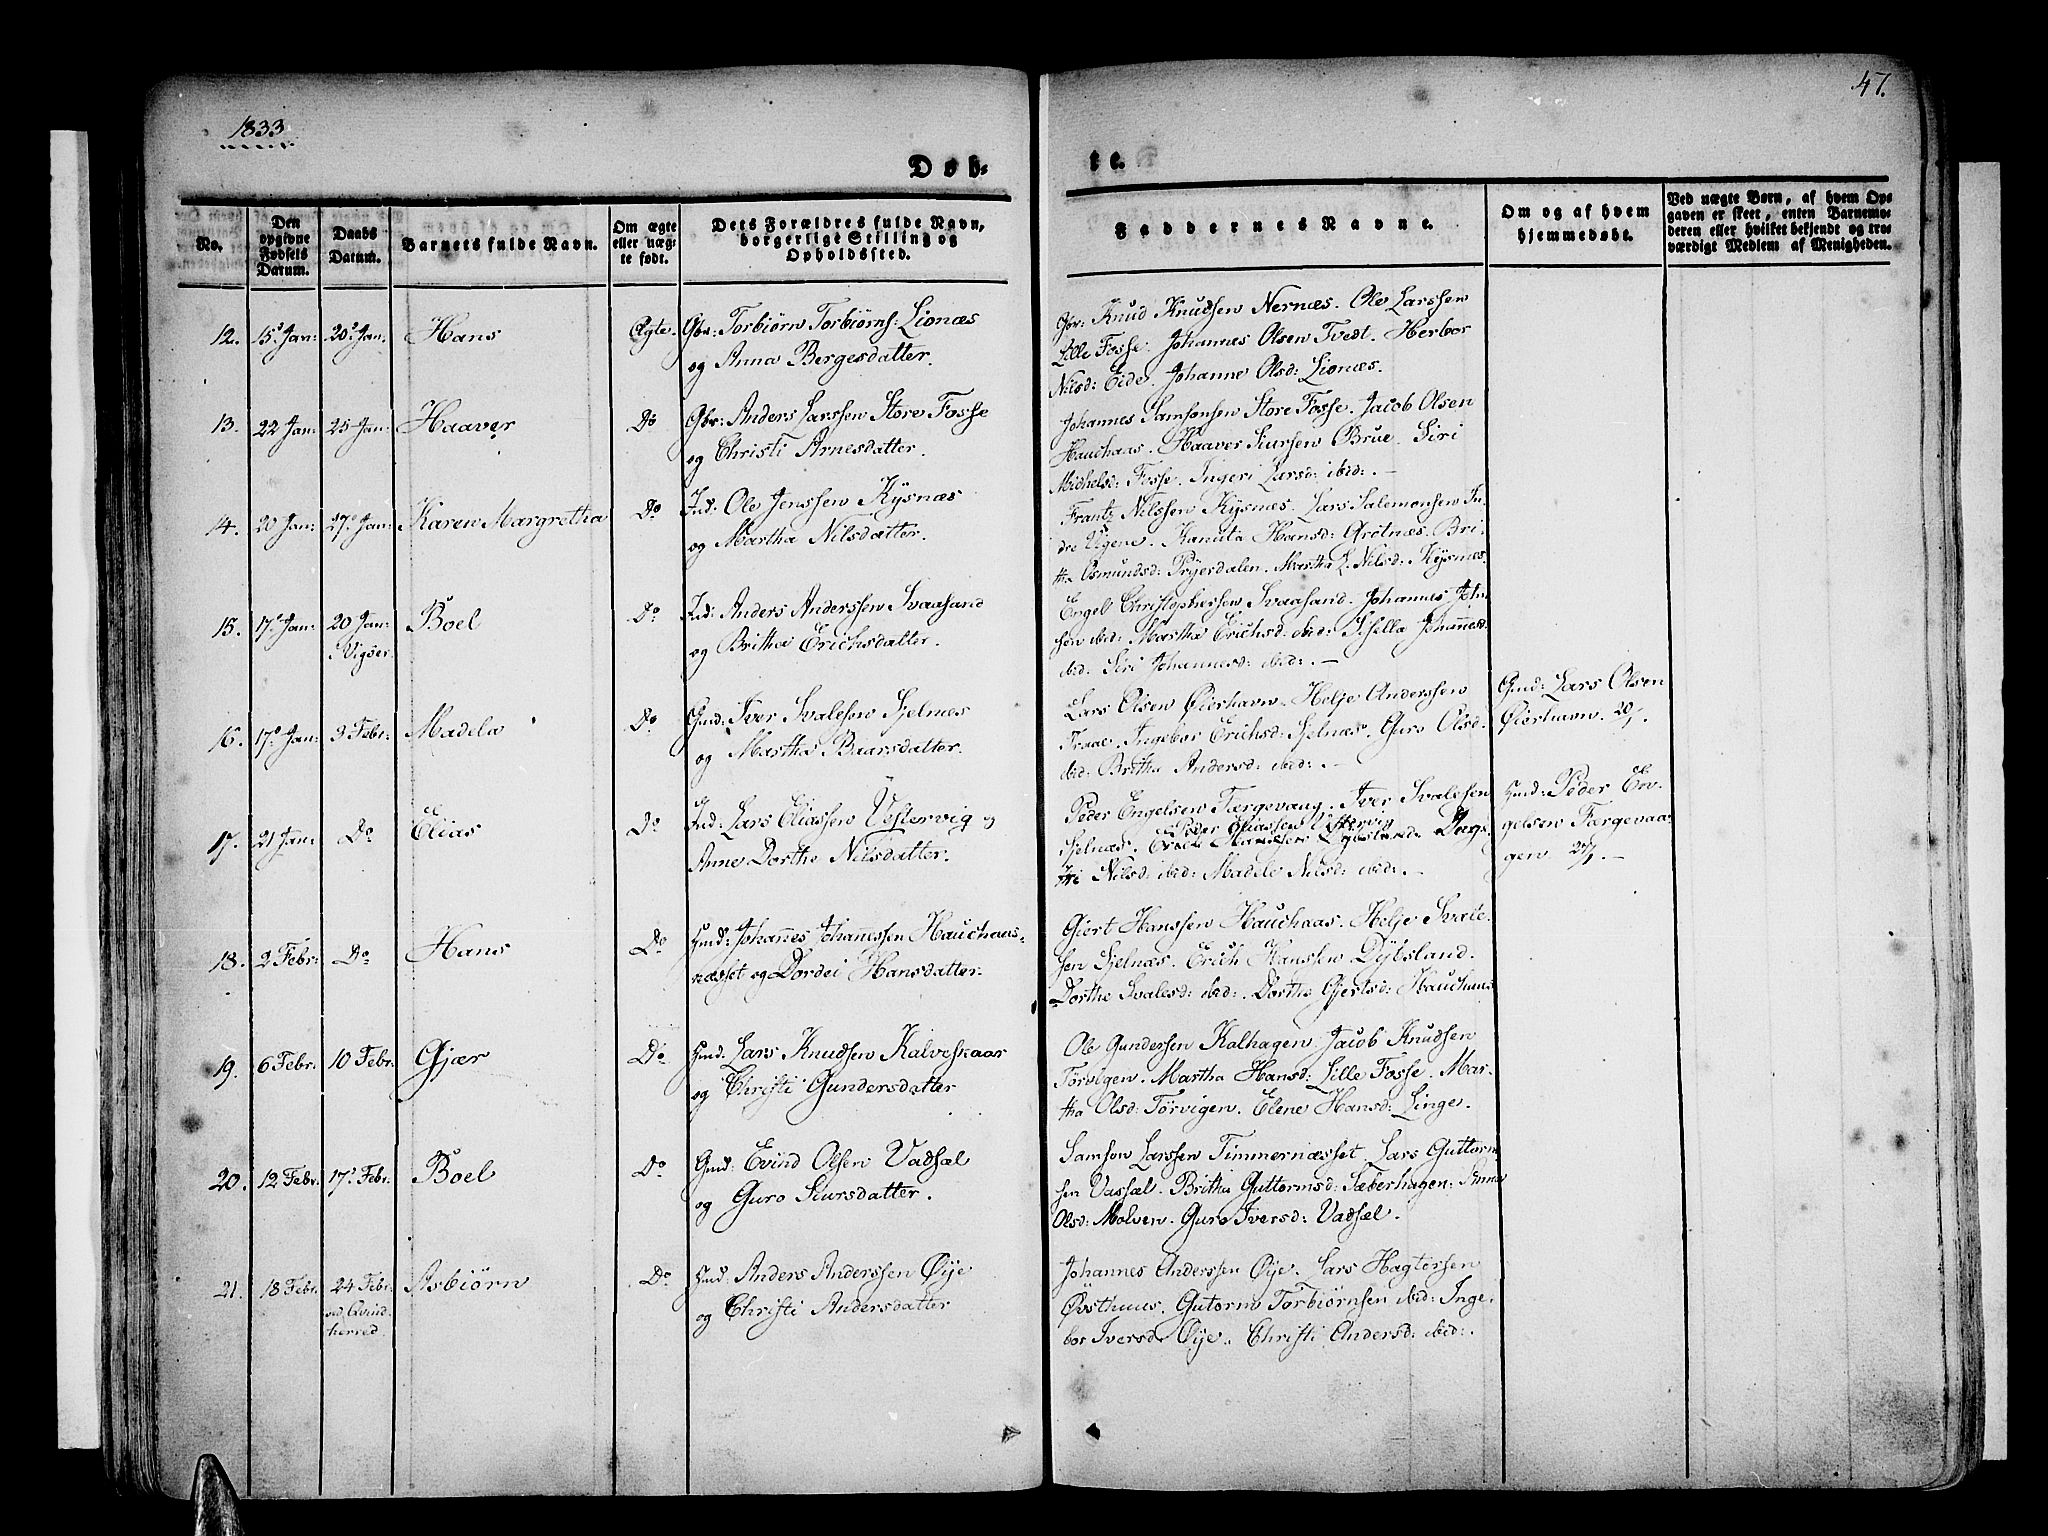 1833
47.
Døb-
te.
No.
Den opgivne Fødsels Datum.
Daabs Datum.
Barnets fulde Navn.
Om ægte eller uægte født.
Dets Forældres fulde Navn, borgerlige Stilling og Opholdssted.
Faddernes Navne.
Om og af hvem hjemmedøbt.
Ved uægte Børn, af hvem Opgaven er skeet, enten Barnemoderen eller hvilket bekjendt og troværdigt Medlem af Menigheden.
12. 15de Jan: 20de Jan: Hans Ægte. Gbr: Torbiørn Torbiørns: Lionæs
og Anna Bergesdatter.
Gbr: Knud Knudsen Nernæs. Ole Larssen
Lille Fosse. Johannes Olsen Tvedt. Herbor
Nilsd: Eide. Johanne Olsd: Lionæs.
13. 22 Jan: 25 Jan: Haaver Do Gbr: Anders Larssen Store Fosse
og Christi Arnesdatter.
Johannes Samsonsen Store Fosse. Jacob Olsen
Hauchaas. Haaver Siursen Brue. Siri
Michelsd: Fosse. Ingeri Larsd: ibid: . —
14. 20 Jan: 27de Jan: Karen Margretha Do Ind: Ole Jenssen Kysnæs
og Martha Nilsdatter.
Frantz Nilssen Kysnæs. Lars Salemonsen In-
dre Vigene. Kanuta Hansd: Grotnæs. Bri-
tha Osmundsd: Prÿerdalen. Martha L. Nilsd: Kysnæs.
15. 17de Jan: 20 Jan: Boel Do Ind: Anders Anderssen Svaasand
i Vigøer
og Britha Erichsdatter.
Engel Christophersen Svaasand. Johannes Joh-
sen ibid: Martha Erichsd: ibid: Isella Johannesd:
ibid: Siri Johannesd: ibid: . —
16. 17de Jan: 3 Febr: Madela Do Gmd: Iver Svalesen Sjelnæs
og Martha Baarsdatter.
Lars Olsen Øierhavn. Helje Anderssen
Traae. Ingebor Erichsd: Sjelnæs. Guro Olsd:
ibid: Britha Andersd: ibid: . —
Gmd: Lars Olsen
Øierhavn. 20/1.
17. 21 Jan: Do Elias Do Ind: Lars Eliassen Vestervig og
Anne Dorthe Nilsdatter.
Peder Engelsen Færgevaag. Iver Svalesen
Peder Eliassen Vestervig
Sjelnæs.
Nilsd: ibid: Madele Nilsd: ibid: . —
Hmd: Peder En-
gelsen Færgevaa-
gen 24/1. —
18. 2 Febr: Do Hans Do Hmd: Johannes Johannessen Hauchaas-
næsset og Dordei Hansdatter.
Giert Hanssen Hauchaas. Helje Svale-
sen Sjelnæs. Erich Hanssen Dybsland.
Dorthe Svalesd: ibid: . Dorthe Gjertsd: Hauchaas
19. 6 Febr: 10 Febr: Gjær Do Hmd: Lars Knudsen Kalveskaar
og Christi Gundersdatter
Ole Gundersen Kalhagen. Jacob Knudsen
Tørvigen. Martha Hansd: Lille Fosse. Mar-
tha Olsd: Tørvigen. Elene Hansd: Linge.
20. 12 Febr: 17de Febr: Boel Do Gmd: Evind Olsen Vadsæl
og Guro Siursdatter.
Samson Larssen Timmernæsset. Lars Guttorm-
sen Vassæl. Britha Guttormsd: Sæberhagen. Anna
Olsd: Molven. Guro Iversd: Vadsæl.
21. 18 Febr: 24 Febr: Asbiørn Do Hmd: Anders Anderssen Øije
ved Qvind-
herred
og Christi Andersdatter
Johannes Anderssen Øije. Lars Hagtorsen
Øvsthuus. Gutorm Torbiørnsen ibid: Inge-
bor Iversd: Øije. Christi Andersd: ibid: .